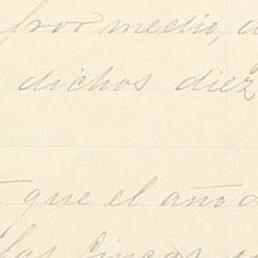 por medio,
dichos diez
que el año
las fincas